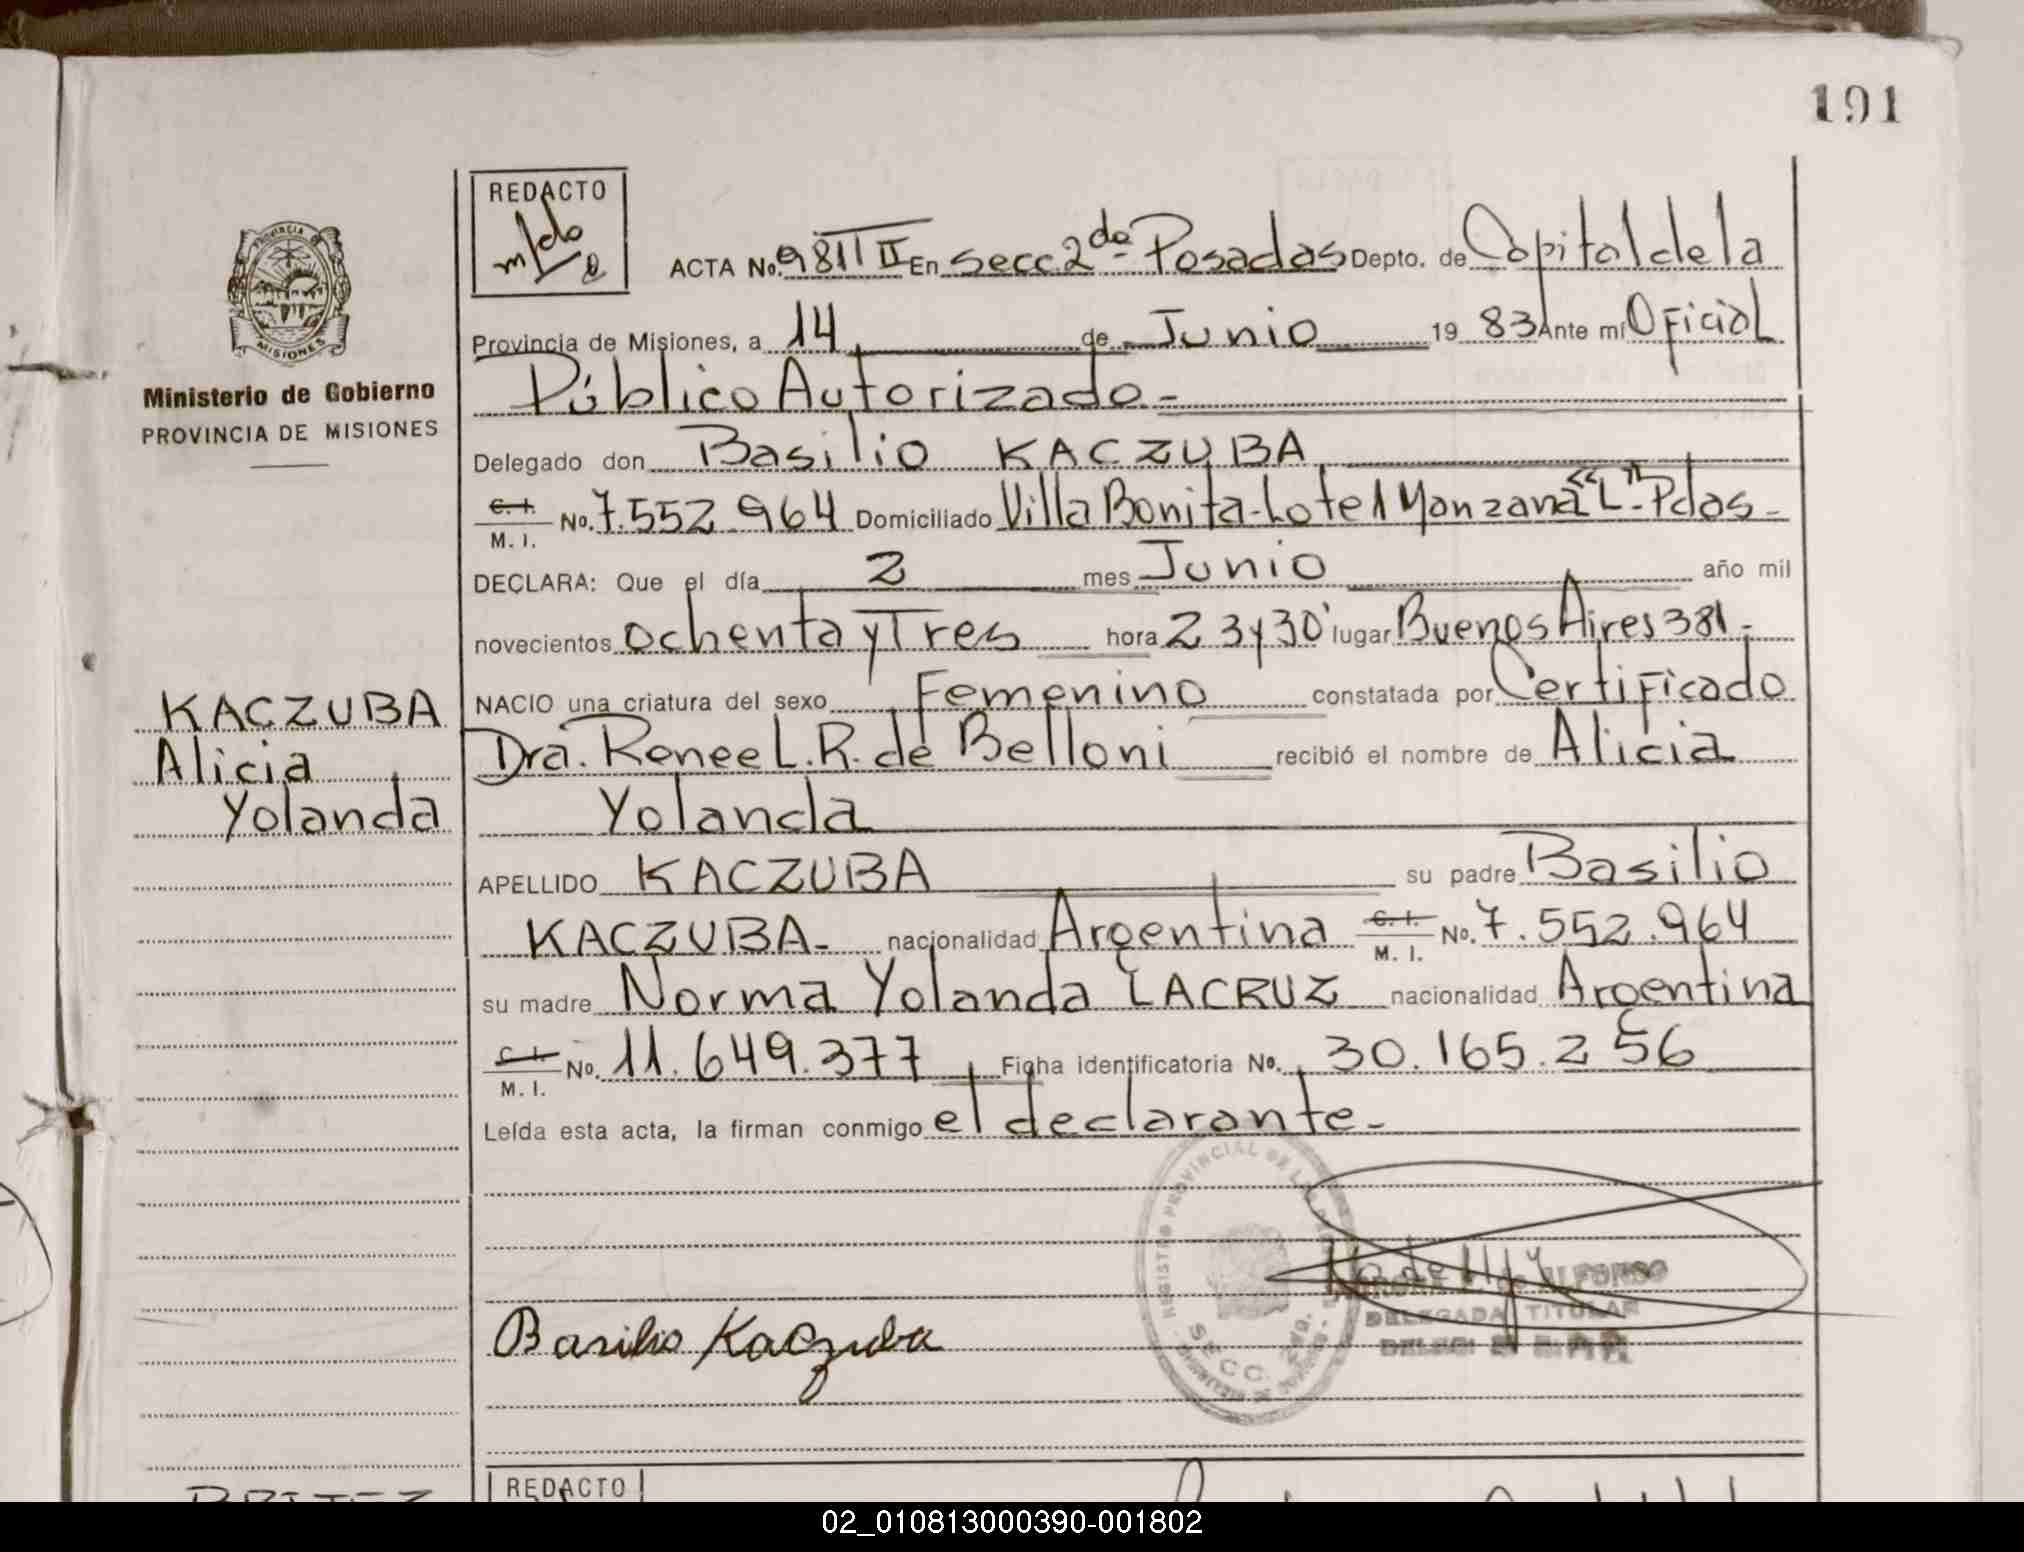 191
REDACTO
PROVINCIA DE
MISIONES
Ministerio de Gobierno
PROVINCIA DE MISIONES
ACTA No. 981 II En secc. 2da - Posadas Depto. de Capital de la
Provincia de Misiones, a 14 de Junio 19 83 Ante mí Oficial
Público Autorizado.-
Delegado don Basilio KACZUBA
C. I.
M. I. No. 7.552.964 Domiciliado Villa Bonita - Lote 1 Manzana "L" - Pdas -
DECLARA: Que el día 2 mes Junio año mil
novecientos ochenta y Tres hora 23 y 30' lugar Buenos Aires 381 -
NACIO una criatura del sexo Femenino constatada por Certificado
Dra. Renee L. R. de Belloni recibió el nombre de Alicia
Yolanda
APELLIDO KACZUBA su padre Basilio
KACZUBA - nacionalidad Argentina C. I.
M. I. No. 7.552.964
su madre Norma Yolanda LACRUZ nacionalidad Argentina
C. I.
M. I. No. 11.649.377 Ficha identificatoria No. 30.165.256
Leída esta acta, la firman conmigo el declarante -
KACZUBA
Alicia
Yolanda
REGISTRO PROVINCIAL DE LAS
SECC. 2da.
de ALFONSO
DELEGADA TITULAR
Basilio Kaczuba
REDACTO
02_010813000390-001802